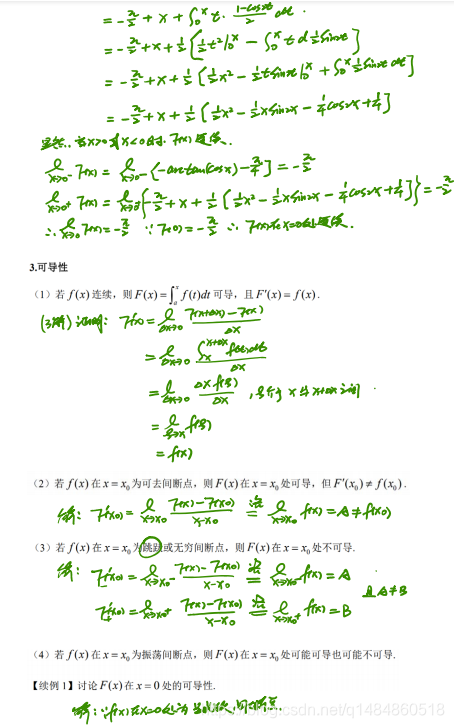 = -π/2 + x + ∫₀ˣ t · (1-cos2t)/2 dt
= -π/2 + x + 1/2 [ 1/2 t² |₀ˣ - ∫₀ˣ t d 1/2 sin2t ]
= -π/2 + x + 1/2 [ 1/2 x² - 1/2 t sin2t |₀ˣ + ∫₀ˣ 1/2 sin2t dt ]
= -π/2 + x + 1/2 [ 1/2 x² - 1/2 x sin2x - 1/4 cos2x + 1/4 ]
显然,当x>0或x<0时,F(x)连续.
l x→0⁻ F(x) = l x→0⁻ {-arctan(cosx) - π/4} = -π/2
l x→0⁺ F(x) = l x→0⁺ {-π/2 + x + 1/2 [ 1/2 x² - 1/2 x sin2x - 1/4 cos2x + 1/4 ]} = -π/2
∴ l x→0 F(x) = -π/2 ∵ F(0) = -π/2 ∴ F(x)在x=0处连续.
3.可导性
(1)若 f(x) 连续,则 F(x) = ∫ₐˣ f(t)dt 可导,且 F'(x) = f(x).
证明: F'(x) = l Δx→0 (F(x+Δx) - F(x))/Δx
= l Δx→0 (∫ₓ^(x+Δx) f(t)dt)/Δx
= l Δx→0 (Δx f(ξ))/Δx ,ξ介于 x 与 x+Δx 之间
= l ξ→x f(ξ)
= f(x)
(2)若 f(x) 在 x = x₀ 为可去间断点,则 F(x) 在 x = x₀ 处可导,但 F'(x₀) ≠ f(x₀).
F'(x₀) = l x→x₀ (F(x) - F(x₀))/(x - x₀) 洛= l x→x₀ f(x) = A ≠ f(x₀)
(3)若 f(x) 在 x = x₀ 为跳跃或无穷间断点,则 F(x) 在 x = x₀ 处不可导.
F'₋(x₀) = l x→x₀⁻ (F(x) - F(x₀))/(x - x₀) 洛= l x→x₀⁻ f(x) = A
F'₊(x₀) = l x→x₀⁺ (F(x) - F(x₀))/(x - x₀) 洛= l x→x₀⁺ f(x) = B 且A≠B
(4)若 f(x) 在 x = x₀ 为振荡间断点,则 F(x) 在 x = x₀ 处可能可导也可能不可导.
【续例 1】讨论 F(x) 在 x = 0 处的可导性.
∵ f(x)在x=0处为 间断点.
csdn.net/q1484860518